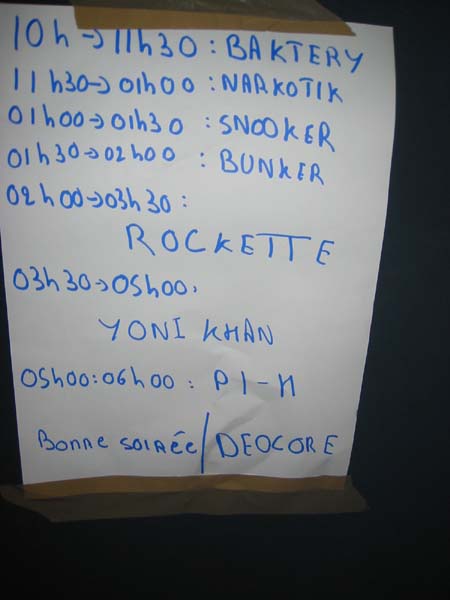 10h→11h30 : BAKTERY
11h30→01h00 : NARKOTIK
01h00→01h30 : SNOOKER
01h30→02h00 : BUNKER
02h00→03h30 :
ROCKETTE
03h30→05h00.
YONI KHAN
05h00:06h00 : PI-H
Bonne soirée/DEOCORE